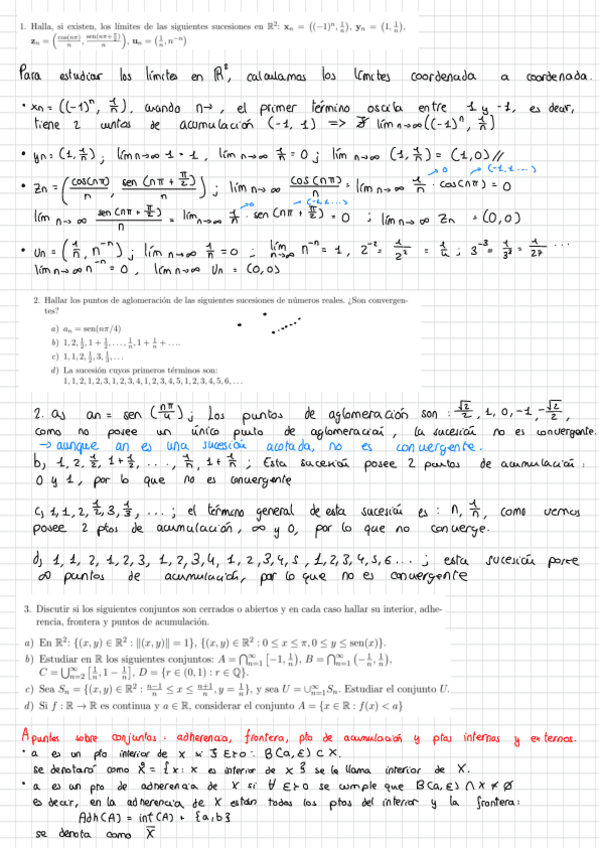 1. Halla, si existen, los límites de las siguientes sucesiones en ℝ²: xₙ = ((-1)ⁿ, 1/n), yₙ = (1, 1/n),
zₙ = (cos(nπ)/n, sen(nπ+π/2)/n), uₙ = (1/n, n⁻ⁿ)
Para estudiar los límites en ℝ², calculamos los límites coordenada a coordenada.
• xn = ((-1)ⁿ, 1/n), cuando n→, el primer término oscila entre 1 y -1, es decir,
tiene 2 puntos de acumulación (-1, 1) => ∄ lím n→∞ ((-1)ⁿ, 1/n)
• yn = (1, 1/n); lím n→∞ 1 = 1, lím n→∞ 1/n = 0; lím n→∞ (1, 1/n) = (1,0)//
→0 →(-1,1...)
• Zn = (cos(nπ)/n, sen(nπ+π/2)/n); lím n→∞ cos(nπ)/n = lím n→∞ 1/n · cos(nπ) = 0
→0 →(-1,1...)
lím n→∞ sen(nπ+π/2)/n = lím n→∞ 1/n · sen(nπ+π/2) = 0 ; lím n→∞ Zn = (0,0)
• Un = (1/n, n⁻ⁿ); lím n→∞ 1/n = 0 ; lím n→∞ n⁻ⁿ = 1, 2⁻² = 1/2² = 1/4 ; 3⁻³ = 1/3³ = 1/27 ...
lím n→∞ n⁻ⁿ = 0, lím n→∞ Un = (0,0)
2. Hallar los puntos de aglomeración de las siguientes sucesiones de números reales. ¿Son convergen-
tes?
a) aₙ = sen(nπ/4)
b) 1, 2, 1/2, 1 + 1/2, ..., 1/n, 1 + 1/n + ....
c) 1, 1, 2, 1/2, 3, 1/3, ...
d) La sucesión cuyos primeros términos son:
1, 1, 2, 1, 2, 3, 1, 2, 3, 4, 1, 2, 3, 4, 5, 1, 2, 3, 4, 5, 6, ...
2. a) an = sen (nπ/4); Los puntos de aglomeración son: √2/2, 1, 0, -1, -√2/2,
como no posee un único punto de aglomeración, la sucesión no es convergente.
→ aunque an es una sucesión acotada, no es convergente.
b) 1, 2, 1/2, 1+1/2, ..., 1/n, 1+1/n ; Esta sucesión posee 2 puntos de acumulación:
0 y 1, por lo que no es convergente
c) 1, 1, 2, 1/2, 3, 1/3, ...; el término general de esta sucesión es: n, 1/n, como vemos
posee 2 ptos de acumulación, ∞ y 0, por lo que no converge.
d) 1, 1, 2, 1, 2, 3, 1, 2, 3, 4, 1, 2, 3, 4, 5, 1, 2, 3, 4, 5, 6 ... ; esta sucesión posee
∞ puntos de acumulación, por lo que no es convergente
3. Discutir si los siguientes conjuntos son cerrados o abiertos y en cada caso hallar su interior, adhe-
rencia, frontera y puntos de acumulación.
a) En ℝ²: {(x, y) ∈ ℝ² : ‖(x, y)‖ = 1}, {(x, y) ∈ ℝ² : 0 ≤ x ≤ π, 0 ≤ y ≤ sen(x)}.
b) Estudiar en ℝ los siguientes conjuntos: A = ⋂ₙ₌₁^∞ [-1, 1/n), B = ⋂ₙ₌₁^∞ (-1/n, 1/n),
C = ⋃ₙ₌₂^∞ [1/n, 1 - 1/n], D = {r ∈ (0, 1) : r ∈ ℚ}.
c) Sea Sₙ = {(x, y) ∈ ℝ² : (n-1)/n ≤ x ≤ (n+1)/n, y = 1/n}, y sea U = ∪ₙ₌₁^∞ Sₙ. Estudiar el conjunto U.
d) Si f : ℝ → ℝ es continua y a ∈ ℝ, considerar el conjunto A = {x ∈ ℝ : f(x) < a}
Apuntes sobre conjuntos: adherencia, frontera, pto de acumulación y ptos internos y externos.
• a es un pto interior de X si ∃ ε>0: B(a,ε) ⊂ X.
se denotará como X̊ = {x: x es interior de X} se le llama interior de X.
• a es un pto de adherencia de X si ∀ ε>0 se cumple que B(a,ε) ∩ X ≠ ∅
es decir, en la adherencia de X están todos los ptos del interior y la frontera:
Adh(A) = int(A) + {a,b}
se denota como X̄